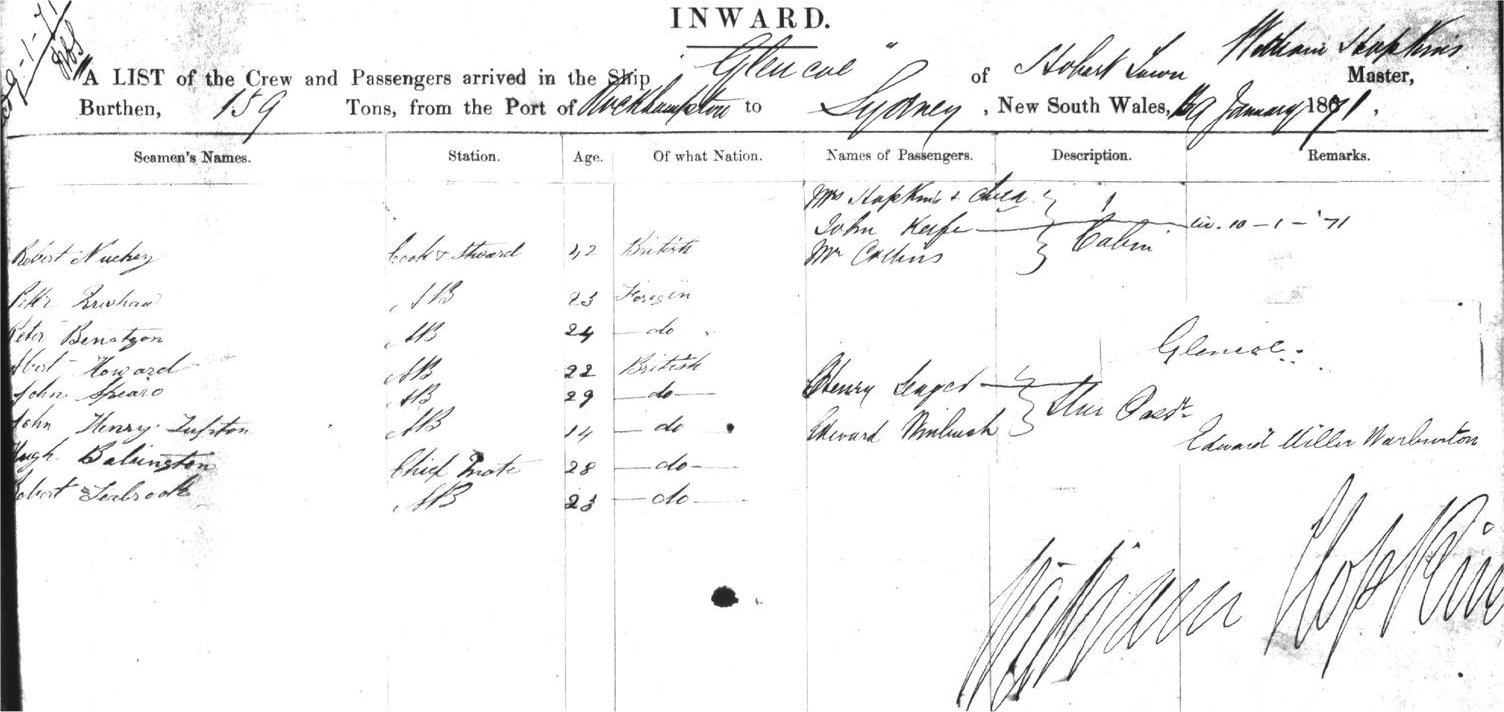 INWARD.
A LIST of the Crew and Passengers arrived in the Ship "Glencoe" of Hobart Town William Hopkins Master,
Burthen, 159 Tons, from the Port of Rockhampton to Sydney, New South Wales, 9 January 1871.
Seamen's Names. Station. Age. Of what Nation. Names of Passengers. Description. Remarks.
Mrs Hopkins & Child
John Keefe Cabin 10-1-'71
Robert Nuckey Cook & Steward 42 British Mr Collins
Peter AB 23 Foreign
Peter Bentzon AB 24 do
Glencoe
Albert Howard AB 22 British
John Spearo AB 29 do Henry
John Henry Tufton AB 14 do Edward Edward Miller Warburton
Hugh Babington Chief Mate 28 do
Robert Seabrook AB 23 do
William Hopkins